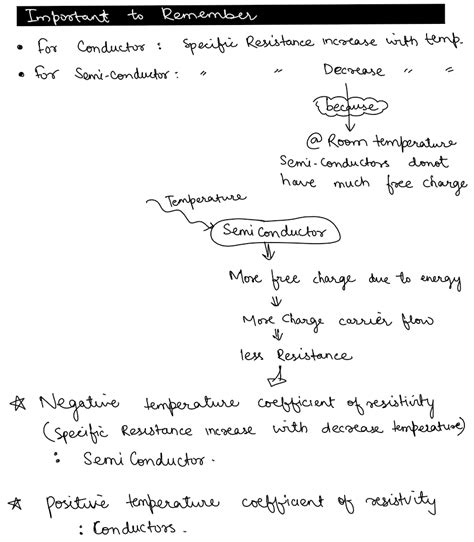 Important to Remember
• For Conductor : Specific Resistance increase with temp.
• For Semi-conductor : " " Decrease " "
because
@ Room temperature
Semi-conductors donot
have much free charge
Temperature
Semi Conductor
More free charge due to energy
More Charge carrier flow
less Resistance
☆ Negative temperature coefficient of resistivity
(Specific Resistance increase with decrease temperature)
: Semi Conductor.
☆ Positive temperature coefficient of resistivity
: Conductors.